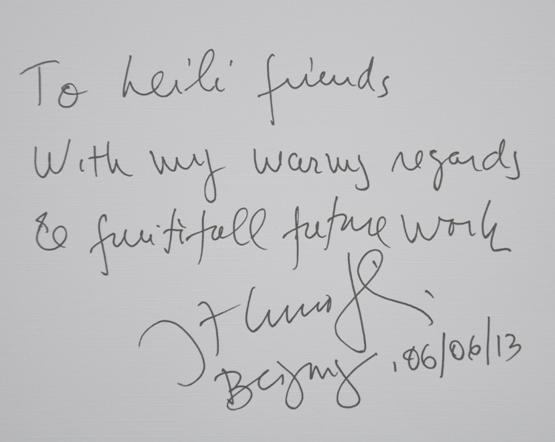 To Leili friends
With my warms regards
& fruitifull future work
Beijing, 06/06/13